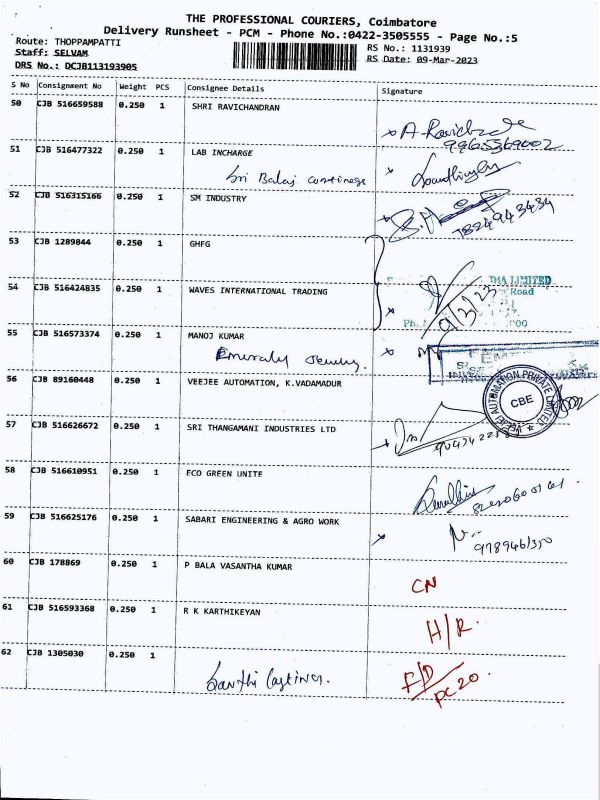 THE PROFESSIONAL COURIERS, Coimbatore
Delivery Runsheet - PCM - Phone No.:0422-3505555 - Page No.:5
Route: THOPPAMPATTI RS No.: 1131939
Staff: SELVAM RS Date: 09-Mar-2023
DRS No.: DCJB113193905
S No Consignment No Weight PCS Consignee Details Signature
50 CJB 516659588 0.250 1 SHRI RAVICHANDRAN
9965369002
51 CJB 516477322 0.250 1 LAB INCHARGE
Sri Balaj castings
52 CJB 516315166 0.250 1 SM INDUSTRY
7824943434
53 CJB 1289844 0.250 1 GHFG
54 CJB 516424835 0.250 1 WAVES INTERNATIONAL TRADING
LIMITED
Road
9/3/23
55 CJB 516573374 0.250 1 MANOJ KUMAR
56 CJB 89160448 0.250 1 VEEJEE AUTOMATION, K.VADAMADUR
AUTOMATION PRIVATE LIMITED
CBE
57 CJB 516626672 0.250 1 SRI THANGAMANI INDUSTRIES LTD
58 CJB 516610951 0.250 1 ECO GREEN UNITE
59 CJB 516625176 0.250 1 SABARI ENGINEERING & AGRO WORK
60 CJB 178869 0.250 1 P BALA VASANTHA KUMAR
CN
61 CJB 516593368 0.250 1 R K KARTHIKEYAN
H/R.
62 CJB 1305030 0.250 1
F/D
PC 20.